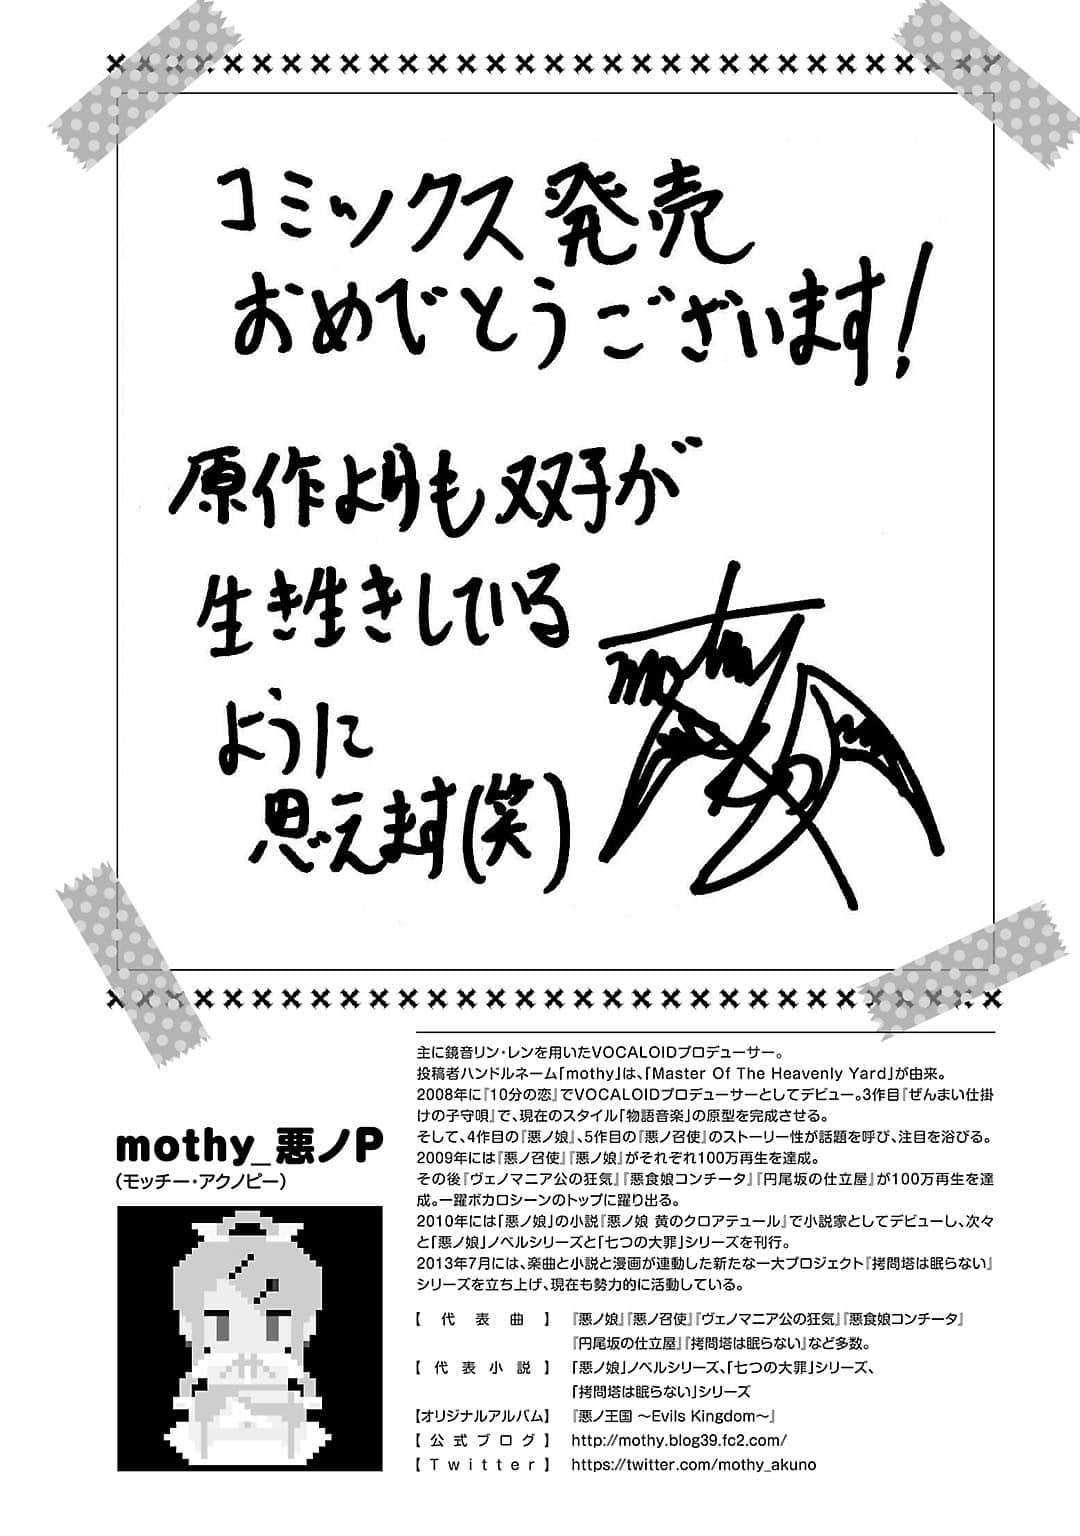 コミックス発売
おめでとうございます!
原作よりも双子が
生き生きしている
ように
思えます(笑)
mothy
mothy_悪ノP
(モッチー・アクノピー)
主に鏡音リン・レンを用いたVOCALOIDプロデューサー。
投稿者ハンドルネーム「mothy」は、「Master Of The Heavenly Yard」が由来。
2008年に『10分の恋』でVOCALOIDプロデューサーとしてデビュー。3作目『ぜんまい仕掛
けの子守唄』で、現在のスタイル「物語音楽」の原型を完成させる。
そして、4作目の『悪ノ娘』、5作目の『悪ノ召使』のストーリー性が話題を呼び、注目を浴びる。
2009年には『悪ノ召使』『悪ノ娘』がそれぞれ100万再生を達成。
その後『ヴェノマニア公の狂気』『悪食娘コンチータ』『円尾坂の仕立屋』が100万再生を達
成。一躍ボカロシーンのトップに躍り出る。
2010年には「悪ノ娘」の小説『悪ノ娘 黄のクロアテュール』で小説家としてデビューし、次々
と「悪ノ娘」ノベルシリーズと「七つの大罪」シリーズを刊行。
2013年7月には、楽曲と小説と漫画が連動した新たな一大プロジェクト『拷問塔は眠らない』
シリーズを立ち上げ、現在も勢力的に活動している。
【代表曲】 『悪ノ娘』『悪ノ召使』『ヴェノマニア公の狂気』『悪食娘コンチータ』
『円尾坂の仕立屋』『拷問塔は眠らない』など多数。
【代表小説】 「悪ノ娘」ノベルシリーズ、「七つの大罪」シリーズ、
「拷問塔は眠らない」シリーズ
【オリジナルアルバム】 『悪ノ王国 〜Evils Kingdom〜』
【公式ブログ】 http://mothy.blog39.fc2.com/
【Twitter】 https://twitter.com/mothy_akuno